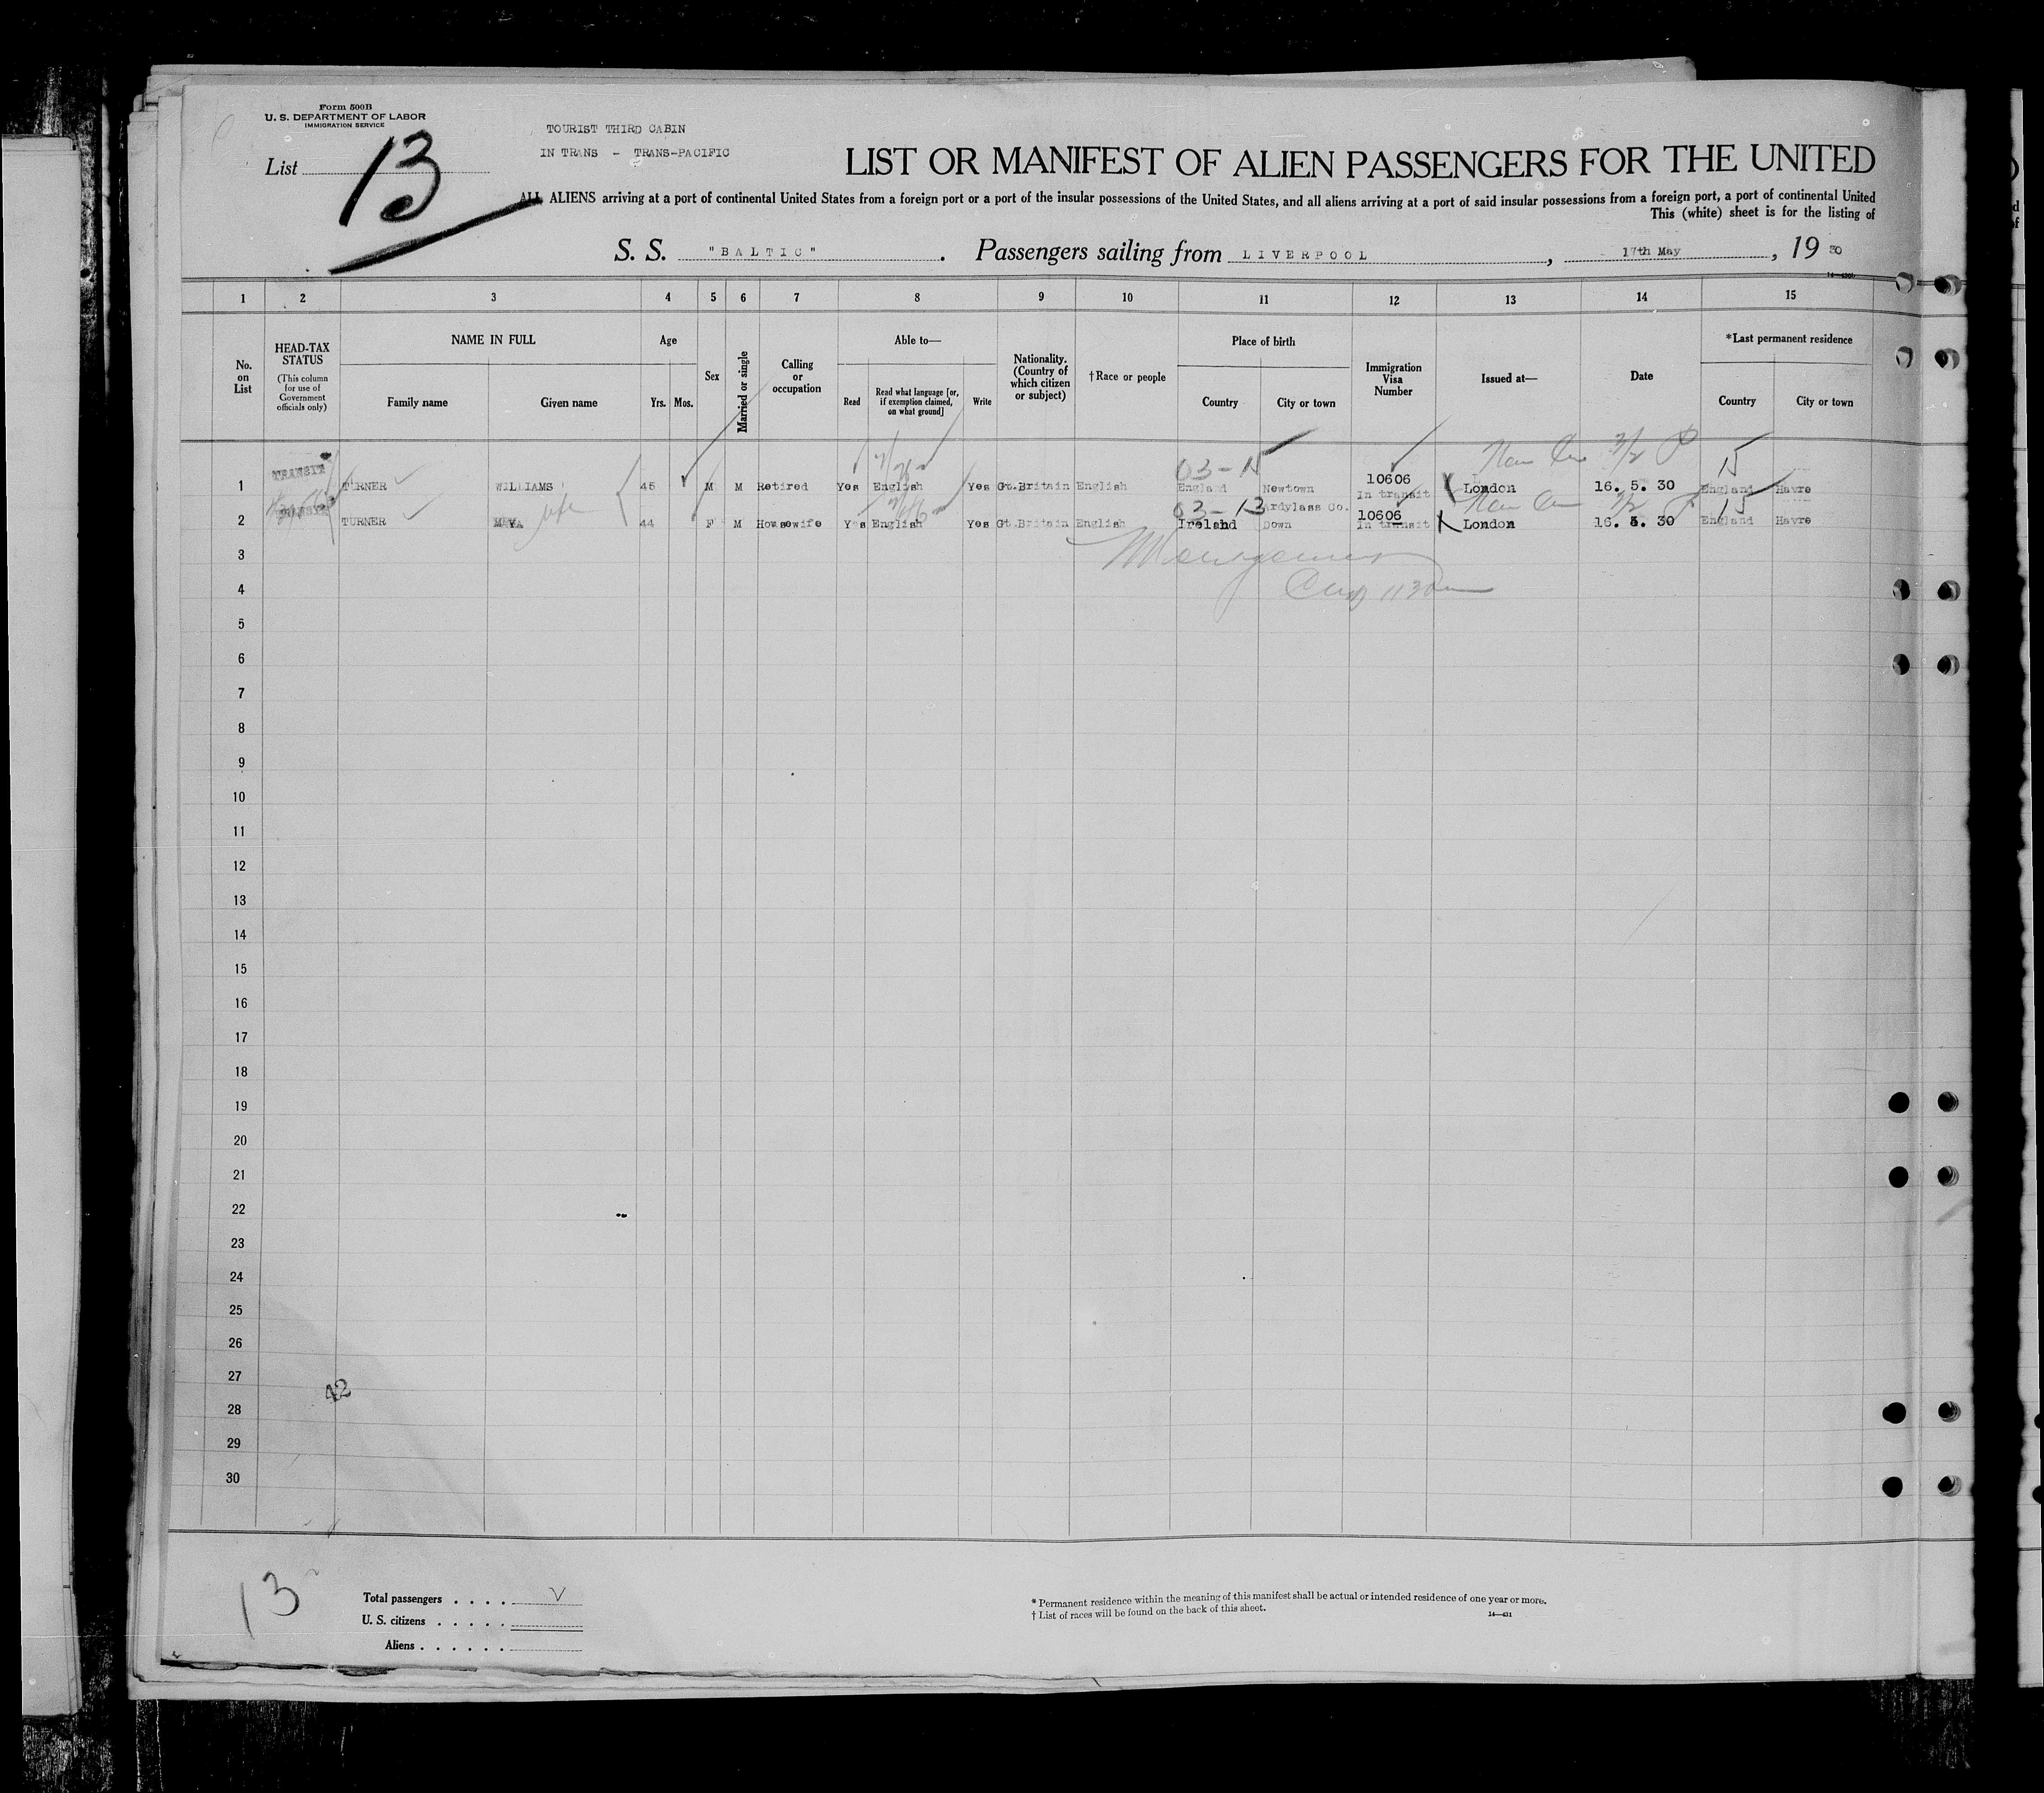 Form 500B
U. S. DEPARTMENT OF LABOR
IMMIGRATION SERVICE
TOURIST THIRD CABIN
IN TRANS - TRANS-PACIFIC
List 13
LIST OR MANIFEST OF ALIEN PASSENGERS FOR THE UNITED
ALL ALIENS arriving at a port of continental United States from a foreign port or a port of the insular possessions of the United States, and all aliens arriving at a port of said insular possessions from a foreign port, a port of continental United
This (white) sheet is for the listing of
S. S. "BALTIC". Passengers sailing from LIVERPOOL, 17th May, 19 30
1 2 3 4 5 6 7 8 9 10 11 12 13 14 15
No. on List
HEAD-TAX STATUS
(This column for use of Government officials only)
NAME IN FULL
Family name Given name
Age
Yrs. Mos.
Sex
Married or single
Calling or occupation
Able to—
Read
Read what language [or, if exemption claimed, on what ground]
Write
Nationality. (Country of which citizen or subject)
†Race or people
Place of birth
Country City or town
Immigration Visa Number
Issued at—
Date
*Last permanent residence
Country City or town
03-15 15
1 TRANSIT TURNER WILLIAMS 45 M M Retired Yes English Yes Gt.Britain English England Newtown 10606 In transit London 16. 5. 30 England Havre
03-13 15
2 TRANSIT TURNER wife 44 F M Housewife Yes English Yes Gt.Britain English Ireland Ardylass Co. Down 10606 In transit London 16. 5. 30 England Havre
3
4
5
6
7
8
9
10
11
12
13
14
15
16
17
18
19
20
21
22
23
24
25
26
27
42
28
29
30
13
Total passengers . . . .
U. S. citizens . . . . .
Aliens . . . . . .
* Permanent residence within the meaning of this manifest shall be actual or intended residence of one year or more.
† List of races will be found on the back of this sheet.
14—431